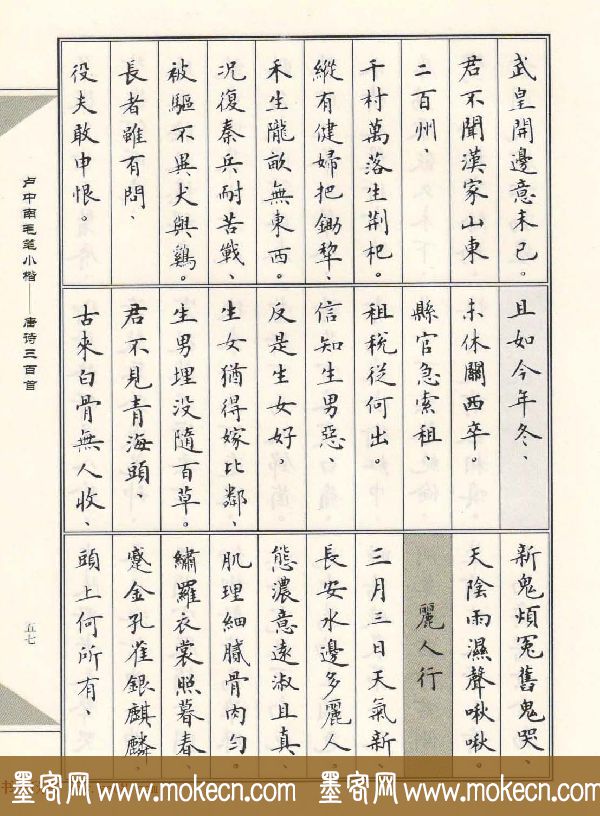 武皇開邊意未已。
君不聞漢家山東
二百州、
千村萬落生荆杞。
縱有健婦把鋤犂、
禾生隴畝無東西。
況復秦兵耐苦戰、
被驅不異犬與鷄。
長者雖有問、
役夫敢申恨。
且如今年冬、
未休關西卒。
縣官急索租、
租税從何出。
信知生男惡、
反是生女好。
生女猶得嫁比鄰、
生男埋没隨百草。
君不見青海頭、
古來白骨無人收、
新鬼煩冤舊鬼哭、
天陰雨濕聲啾啾。
麗人行
三月三日天氣新、
長安水邊多麗人。
態濃意遠淑且真、
肌理細膩骨肉勻。
繡羅衣裳照暮春、
蹙金孔雀銀麒麟、
頭上何所有、
卢中南毛笔小楷——唐诗三百首
五七
墨客网 www.mokecn.com 墨客网 www.mokecn.com